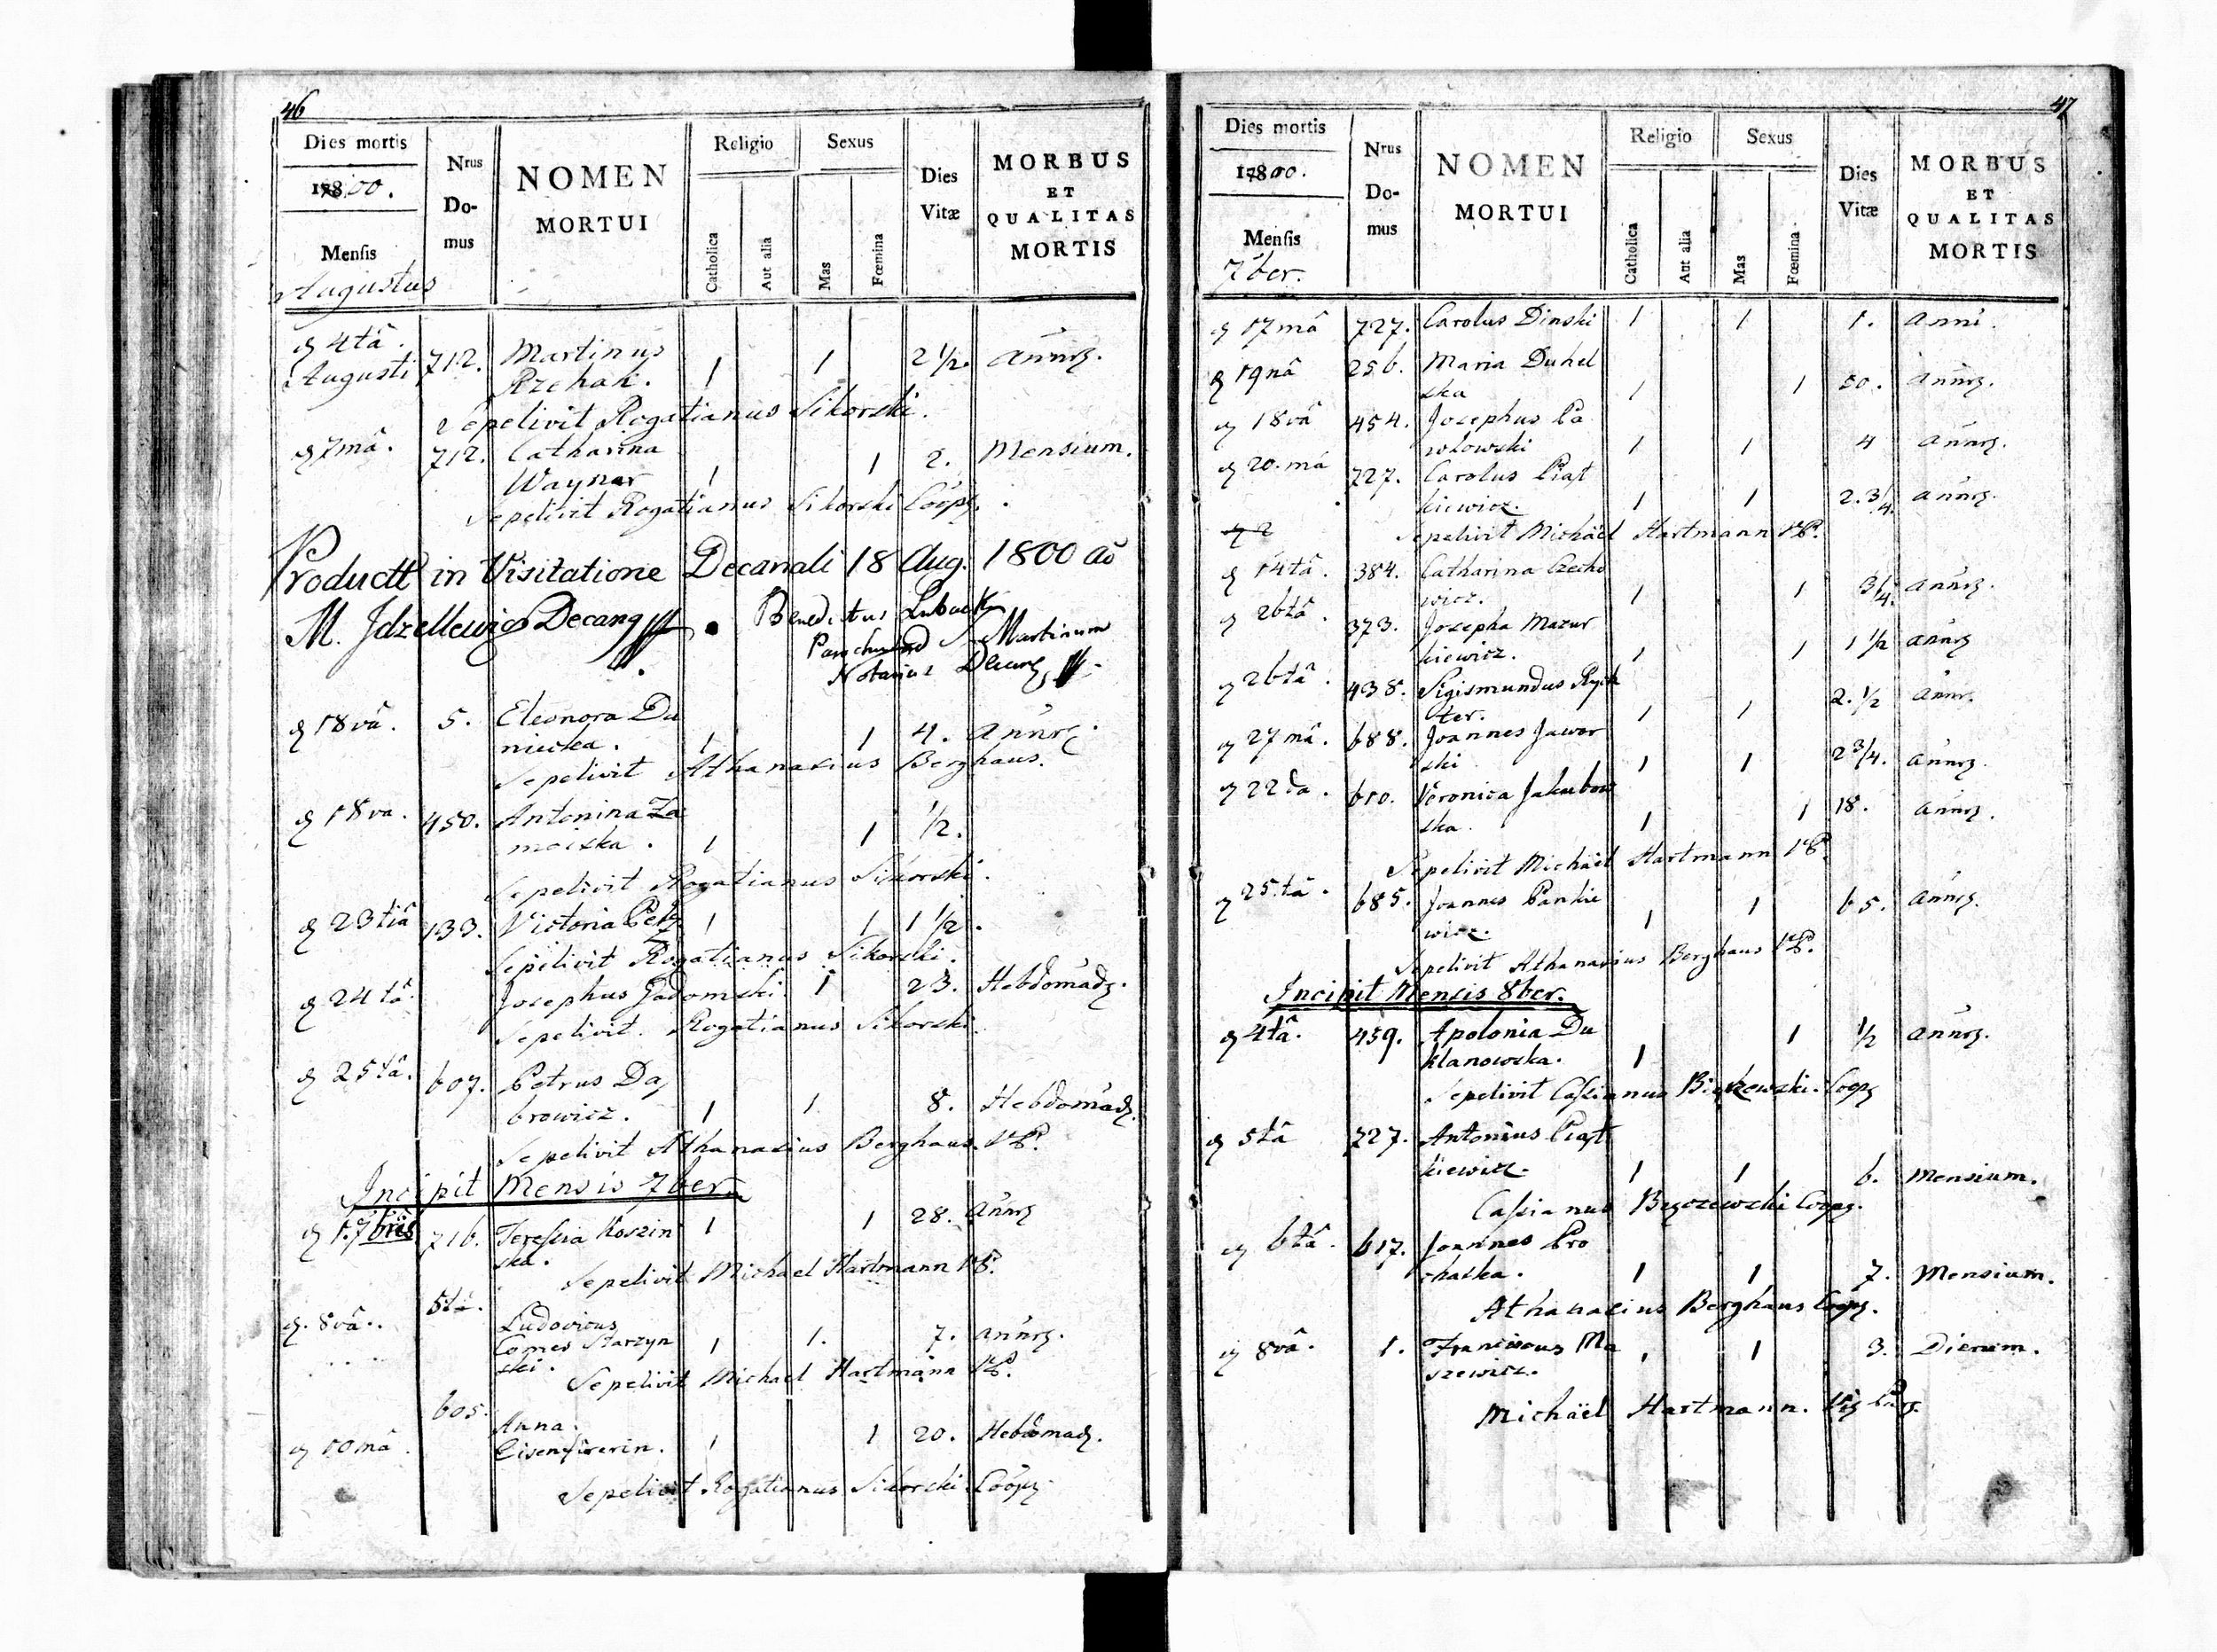 46
Dies mortis
1800.
Mensis
Augustus
Nrus Domus
NOMEN MORTUI
Religio
Catholica
Aut alia
Sexus
Mas
Fœmina
Dies Vitæ
MORBUS ET QUALITAS MORTIS
4tâ Augusti 712. Martinus Rzehak. 1 1 2 1/2. annrũ.
Sepelivit Rogatianus Sikorski.
7mâ. 712. Catharina Waynar 1 1 2. Mensium.
Sepelivit Rogatianus Sikorski Coop.
Product in Visitatione Decanali 18 Aug. 1800 ao
M. Jdzellewicz Decanq
Benedictus
Martinum
Notarius
18vâ. 5. Eleonora Du
niecka. 1 1 4. annrũ.
Sepelivit Athanasius Berghaus.
18va. 450. Antonina Za
moiska. 1 1 1/2.
Sepelivit Rogatianus Sikorski.
23tiâ 133. Victoria Petz 1 1 1 1/2.
Sepelivit Rogatianus Sikorski.
24tâ. Josephus Gadomski. 1 23. Hebdomadũ.
Sepelivit. Rogatianus Sikorski
25tâ. 607. Petrus Dą
browicz. 1 1 8. Hebdomadũ.
Sepelivit Athanasius Berghaus. VP.
Incipit Mensis 7ber
1. 7bris 716. Teressia Koszin
ska. 1 1 28. annrũ
Sepelivit Michael Hartmann VP.
8vâ. Ludovicus
Comes Starzyn
ski. 1 1. 7. annrũ.
Sepelivit Michael Hartmann VP.
605.
10mâ. Anna
Eisenfirerin. 1 1 20. Hebdomadũ.
Sepelivit Rogatianus Sikorski Coop
47
Dies mortis
1800.
Mensis
7ber.
Nrus Domus
NOMEN MORTUI
Religio
Catholica
Aut alia
Sexus
Mas
Fœmina
Dies Vitæ
MORBUS ET QUALITAS MORTIS
17mâ 727. Carolus Dinski 1 1 1. anni.
19nâ 256. Maria Duhel
ska 1 1 50. annrũ.
18vâ 454. Josephus Pa
wlowski 1 1 4 annrũ.
20.mâ 727. Carolus Piąt
kiewicz. 1 1 2. 3/4. annrũ.
Sepelivit Michäel Hartmann VP.
14tâ. 384. Catharina Czecho
wicz. 1 1 3/4. annrũ.
26tâ. 373. Josepha Mazur
kiewicz. 1 1 1 1/2 annrũ
26tâ. 438. Sigismundus Rych
ter. 1 1 2. 1/2 annr.
27mâ. 688. Joannes Jawor
ski 1 1 2 3/4. annrũ.
22da. 610. Veronica Jakubow
ska. 1 1 18. annrũ.
Sepelivit Michäel Hartmann VP.
25.tâ. 685. Joannes Pankie
wicz. 1 1 65. annrũ.
Sepelivit Athanasius Berghaus VP.
Incipit Mensis 8ber.
4tâ. 459. Apolonia Du
klanowska. 1 1 1/2 annrũ.
Sepelivit Cassianus Coop
5tâ 727. Antonius Piąt
kiewicz. 1 1 6. Mensium.
Cassianus Coop.
6tâ. 617. Joannes Pro
chaska. 1 1 7. Mensium.
Athanasius Berghaus Coop.
8vâ. 1. Franciscus Ma
szewicz. 1 1 3. Dierum.
Michäel Hartmann. Vic Par.